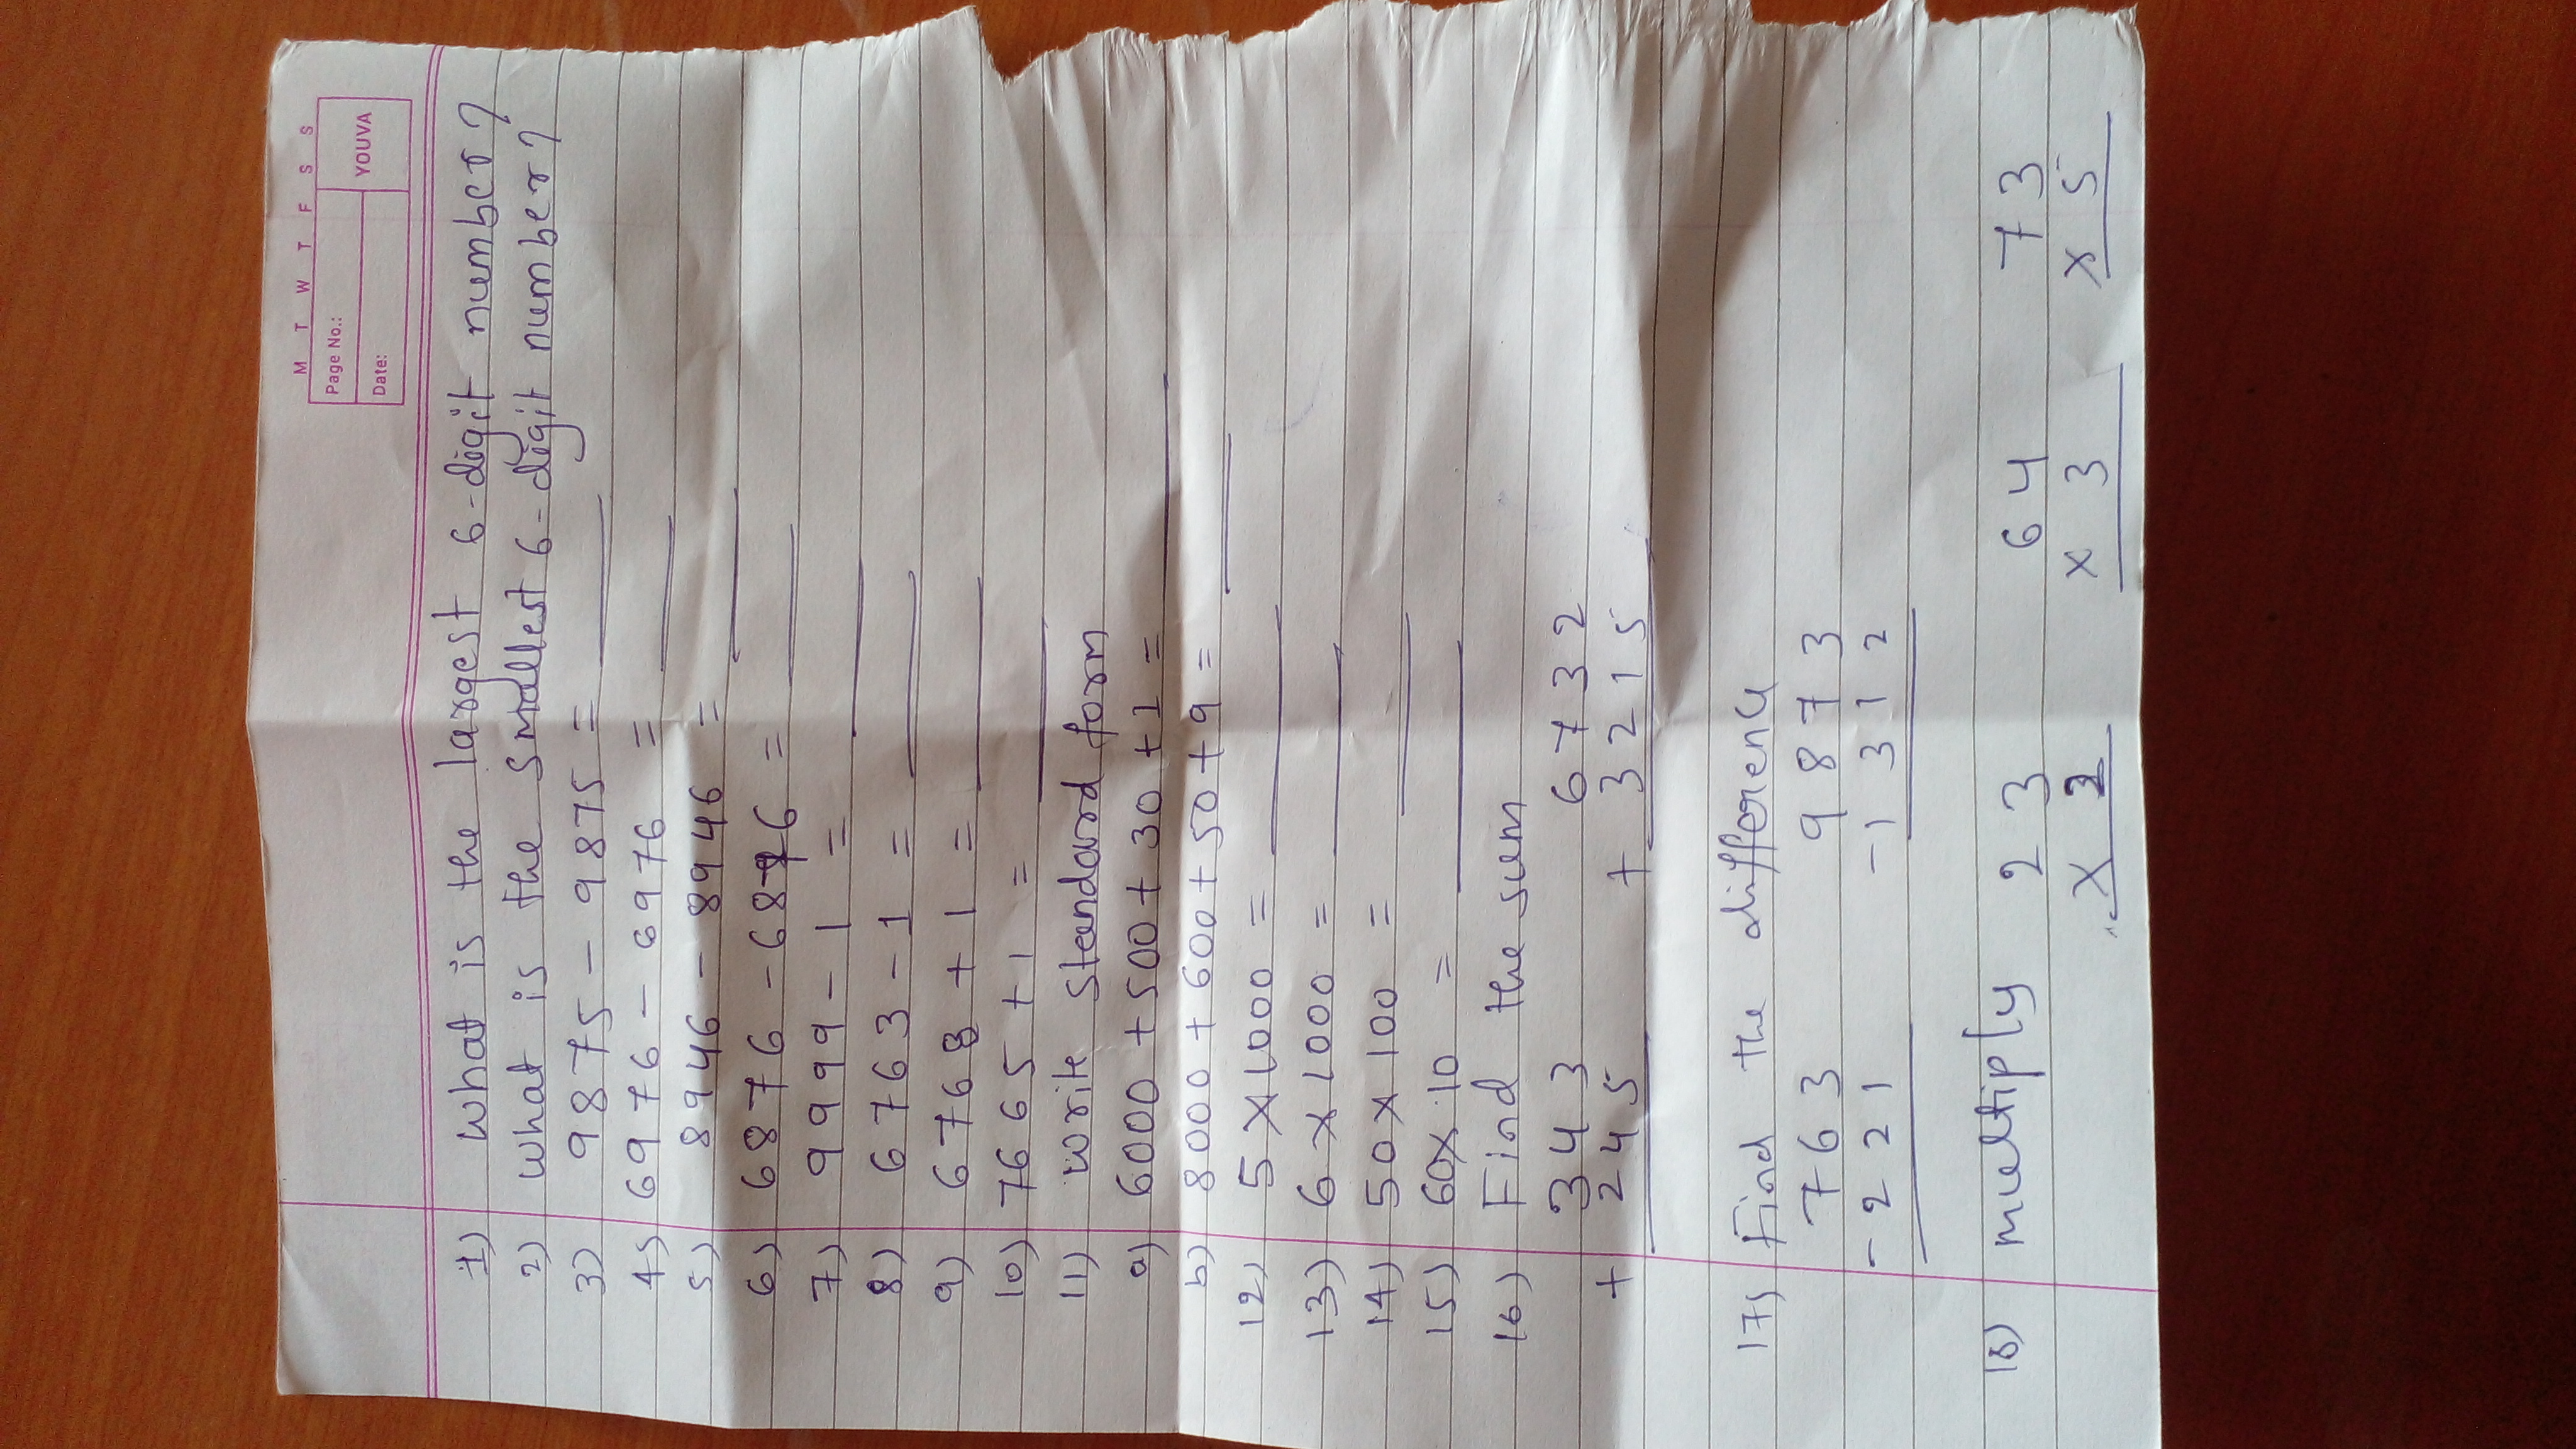 M T W T F S S
Page No.:
Date:
YOUVA
1) what is the largest 6-digit number?
2) what is the smallest 6-digit number?
3) 9875 - 9875 =
4) 6976 - 6976 =
5) 8946 - 8946 =
6) 6876 - 6876 =
7) 9999 - 1 =
8) 6763 - 1 =
9) 6768 + 1 =
10) 7665 + 1 =
11) write standard form
a) 6000 + 500 + 30 + 1 =
b) 8000 + 600 + 50 + 9 =
12) 5 x 1000 =
13) 6 x 1000 =
14) 50 x 100 =
15) 60 x 10 =
16) Find the sum
343 6732
+ 245 + 3215
17) Find the difference
763 9873
- 221 - 1312
18) multiply 23 64 73
x 2 x 3 x 5